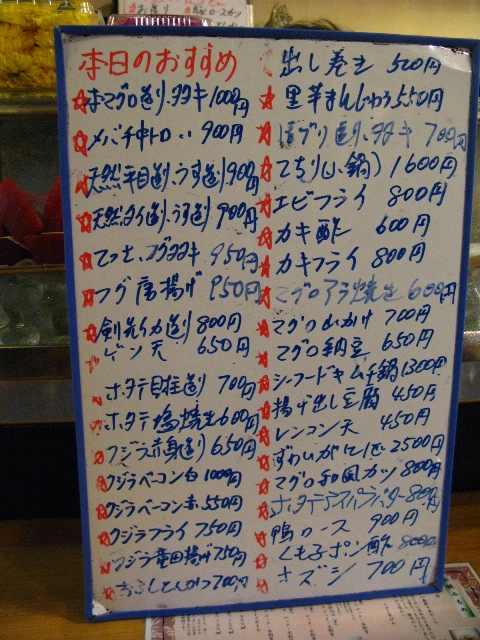 本日のおすすめ
本マグロ造り.タタキ 1000円
メバチ中トロ 〃 900円
天然平目造り.うす造り 900円
天然タイ造り.うす造り 900円
てっさ.フグタタキ 950円
フグ唐揚げ 950円
剣先イカ造り 800円
ゲソ天 650円
ホタテ貝柱造り 700円
ホタテ塩焼き 600円
クジラ赤身造り 650円
クジラベーコン白 1000円
クジラベーコン赤 550円
クジラフライ 750円
クジラ竜田揚げ 750円
とんかつ 700円
出し巻き 500円
里芋まんじゅう 550円
造り.タタキ 700円
てちり(小鍋) 1600円
エビフライ 800円
カキ酢 600円
カキフライ 800円
マグロアラ焼き 600円
マグロ山かけ 700円
マグロ納豆 650円
シーフードキムチ鍋 1300円
揚げ出し豆腐 450円
レンコン天 450円
ずわいがに1匹 2500円
マグロ和風カツ 800円
ホタテアスパラバター 800円
鴨ロース 900円
くも子ポン酢 800円
キズシ 700円